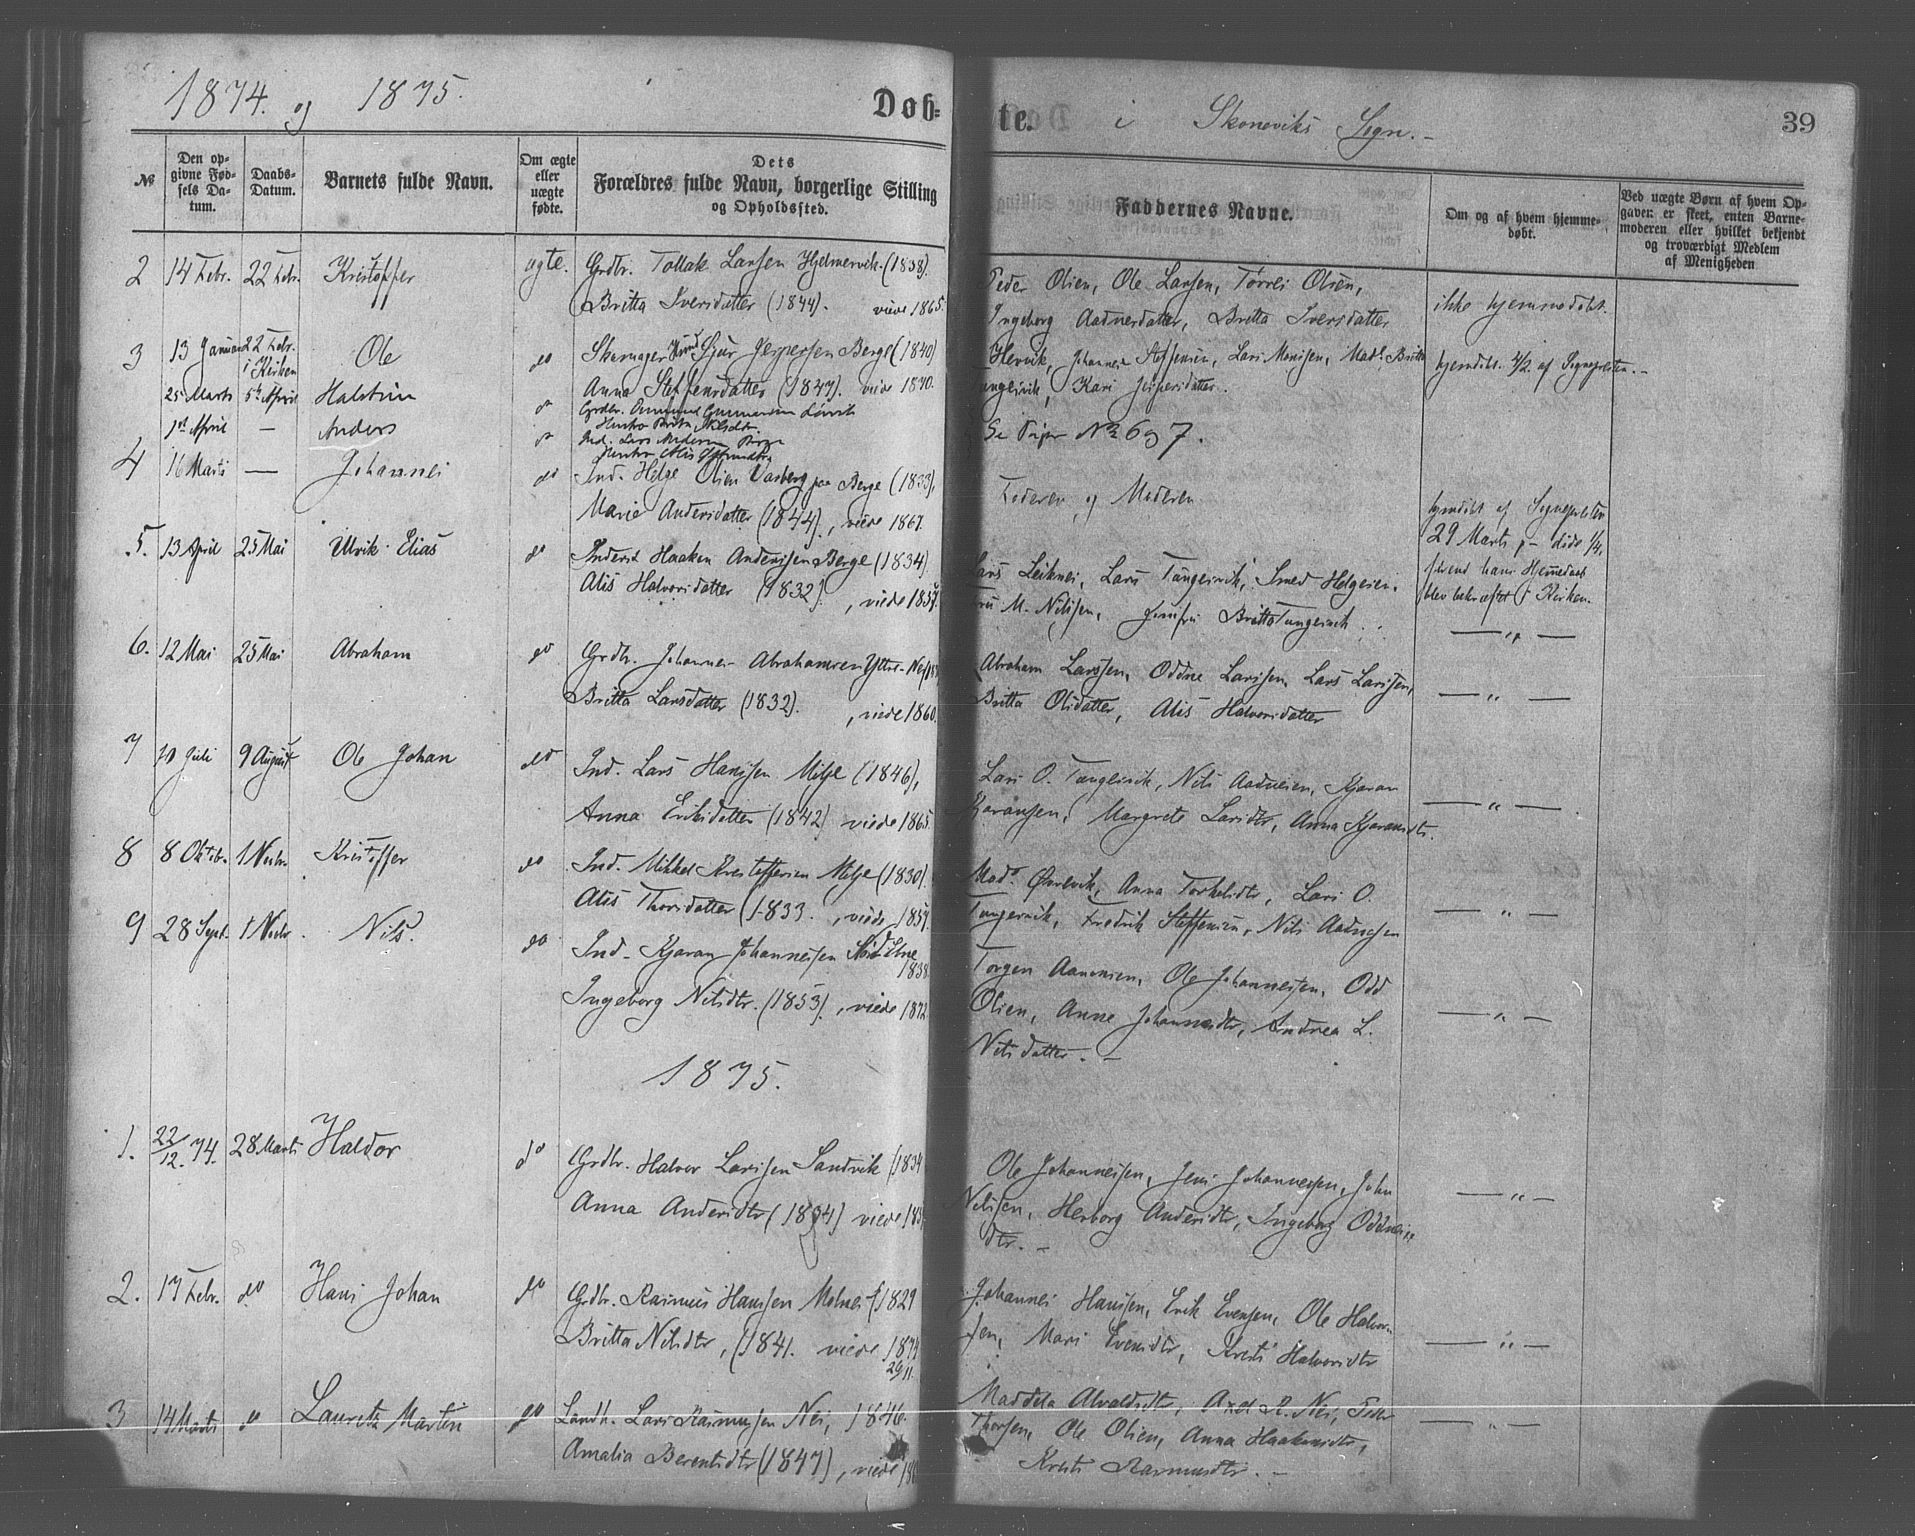 1874. og 1875.
Døb=
te. i Skoneviks Sogn. -
39
№
Den op-
givne Fød-
sels Da-
tum.
Daabs-
Datum.
Barnets fulde Navn.
Om ægte
eller
uægte
fødte.
Dets
Forældres fulde Navn, borgerlige Stilling
og Opholdssted.
Faddernes Navne.
Om og af hvem hjemme-
døbt.
Ved uægte Børn af hvem Op-
gaven er skeet, enten Barne-
moderen eller hvilket bekjendt
og troværdigt Medlem
af Menigheden
2 14 Febr. 22 Febr. Kristoffer ægte. Grdbr. Tollak Larsen Hjelmervik (1838).
Britta Iversdatter (1844). viede 1865.
Peder Olsen, Ole Larsen, Tørres Olsen,
Ingeborg Aadnesdatter, Britta Iversdatter
ikke hjemmedøbt.
3 13 Januar 22 Febr. i Kirken Ole do Sjur Jespersen Berge (1840)
Anna Steffensdatter (1847). viede 1870.
Johannes Steffensen, Lars Monsen, Mad. Britta
Tungesvik, Kari Jespersdatter.
hjemdøbt 4/2 af Sognepresten. -
25 Marts 5te April Halstein do Grdbr.
1st April — Anders do Ind. Lars
Se Piger No 6 og 7.
4 16 Marts — Johannes do Ind. Helge Olsen Varberg paa Berge (1833),
Marie Andersdatter (1844)., viede 1867.
Faderen og Moderen
hjemdøbt af Sognepresten
29 Marts, - døde 1/4,
førend hans Hjemmedaab
blev bekræftet i Kirken.
5. 13 April 25 Mai Ulrik Elias do Inderst Haaken Anderssen Berge (1834)
Alis Halvorsdatter (1832)., viede 1857.
Lars Leiknes, Lars Tungesvik, Smed Helgesen,
Fru M. Nilssen, Jomfru Britta Tungesvik.
— " —
6. 12 Mai 25 Mai Abraham do Grdb. Johannes Abrahamsen Ytre-Nes
Britta Larsdatter (1832)., viede 1860.
Abraham Larssen, Oddne Larssen, Lars Larssen,
Britta Olsdatter, Alis Halvorsdatter
— " —
7 10 Juli 9 August Ole Johan do Ind. Lars Hanssen Milje (1846),
Anna Eriksdatter (1842) viede 1865.
Lars O. Tungesvik, Nils Aadnesen, Kjaran
Kjaransen, Margrete Larsdtr, Anna Kjaransdtr.
— " —
8 8 Oktobr. 1 Novbr Kristoffer do Ind. Mikkel Kristoffersen Milje (1830).
Alis Thorsdatter (1833., viede 1857.
Mad. Ørnevik, Anna Torkelsdtr, Lars O.
Tungesvik, Fredrik Steffensen, Nils Aadnesen
— " —
9 28 Sept. 1 Novbr. Nils. do Ind. Kjaran Johannessen Nord Etne
1838.
Ingeborg Nilsdtr. (1853)., viede 1872
Torger Aamonsen, Ole Johannessen, Odd
Olsen, Anne Johannesdtr, Andrea L.
Nilsdatter. -
— " —
1875.
1. 22/12. 74. 28 Marts Haldor do Grdbr. Halvor Larssen Sandvik (1834
Anna Andersdtr (1834) viede 185
Ole Johannessen, Jens Johannessen, John
Nilssen, Herborg Andersdtr, Ingeborg Oddnes-
dtr. -
— " —
2. 17 Febr. do Hans Johan do Grdbr. Rasmus Hanssen Molnes (1829
Britta Nilsdtr, (1841. viede 1874
29/11.
Johannes Hanssen, Erik Evensen, Ole Halvor-
sen, Mari Evensdtr, Kristi Halvorsdtr
— " —
3 14 Marts do Lauritz Martin do Landh. Lars Rasmussen Nes, 1846.
Amalia Berentsdtr (1847), viede 18
Maddela Alvaldsdtr, Axel R. Nes, Peder
Thorsen, Ole Olsen, Anna Haakensdtr,
Kristi Rasmusdtr. -
— " —